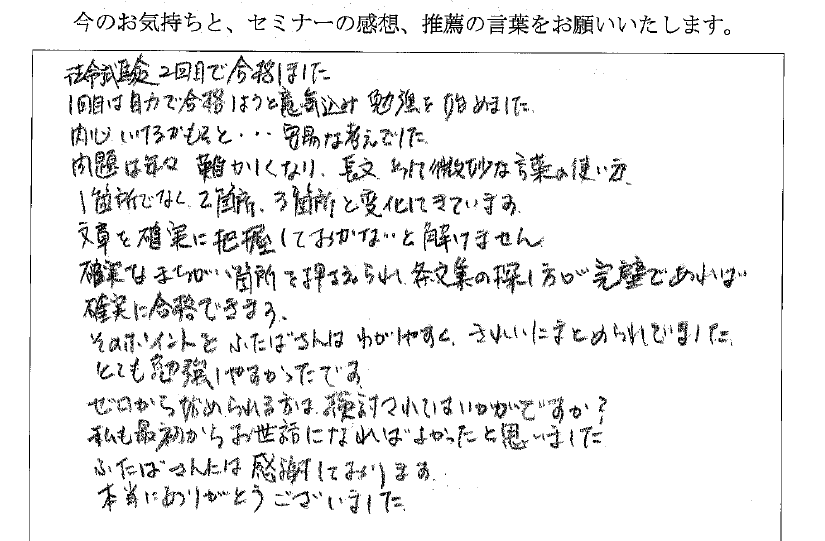 今のお気持ちと、セミナーの感想、推薦の言葉をお願いいたします。
法令試験2回目で合格しました
1回目は自力で合格しようと意気込み勉強を始めました。
内心いけるかもと・・・安易な考えでした
問題は年々難かしくなり、長文、あげく微妙な言葉の使い方、
1箇所でなく、2箇所、3箇所と変化してきています。
文章を確実に把握しておかないと解けません
確実なまちがい箇所を押さえられ、条文集の探し方が完璧であれば
確実に合格できます。
そのポイントをふたばさんはわかりやすく、きれいにまとめられていました。
とても勉強しやすかったです
ゼロから始められる方は、検討されてはいかがですか?
私も最初からお世話になればよかったと思いました
ふたばさんには感謝しております。
本当にありがとうございました